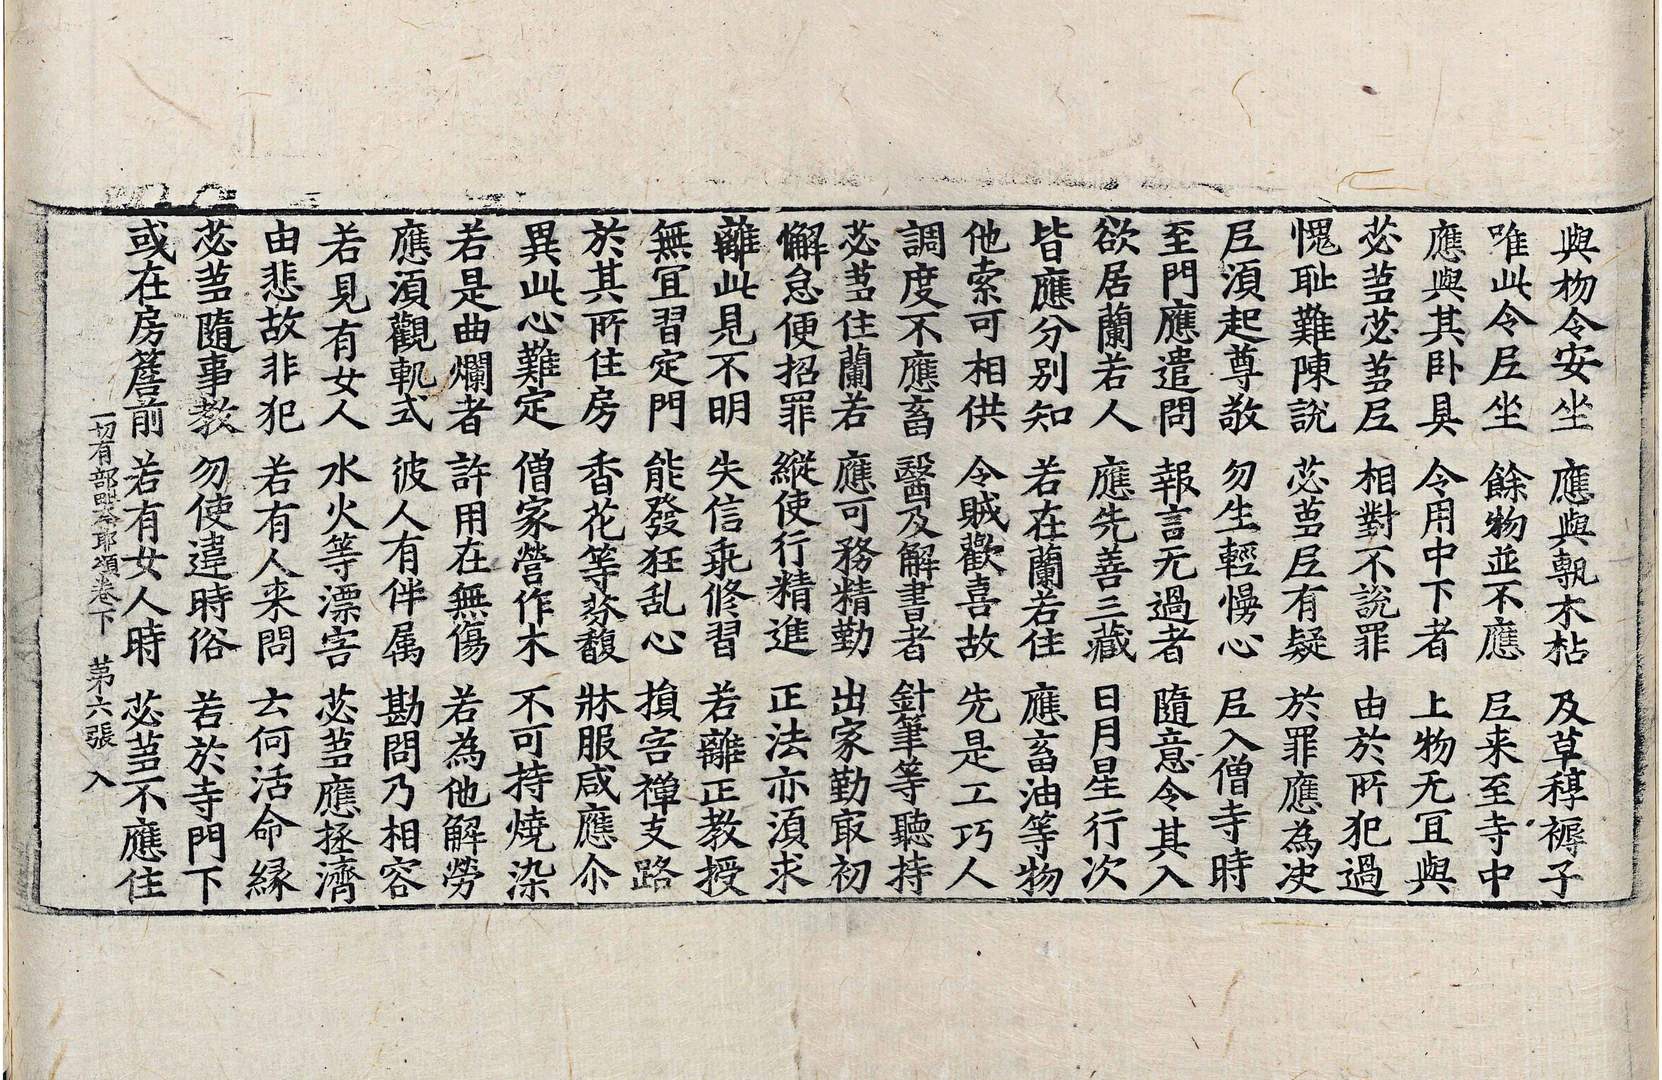 與物令安坐 應與甎木枯 及草稕褥子
唯此令𡰱坐 餘物並不應 𡰱来至寺中
應與其卧具 令用中下者 上物无冝與
苾芻苾芻𡰱 相對不說罪 由於所犯過
愧耻難陳說 苾芻𡰱有疑 於罪應為决
𡰱湏起尊敬 勿生輕慢心 𡰱入僧寺時
至門應遣問 報言无過者 隨意令其入
欲居蘭若人 應先善三藏 日月星行次
皆應分别知 若在蘭若住 應畜油等物
他索可相供 令賊歡喜故 先是工巧人
調度不應畜 醫及解書者 針筆等聽持
苾芻住蘭若 應可務精勤 出家勤㝡初
懈怠便招罪 縱使行精進 正法亦湏求
離此見不明 失信乖修習 若離正教授
無冝習定門 能發狂乱心 損害禪支路
於其所住房 香花等芬馥 牀服咸應尒
異此心難定 僧家營作木 不可持燒染
若是曲爛者 許用在無傷 若為他解勞
應湏觀軌式 彼人有伴属 勘問乃相容
若見有女人 水火等漂害 苾芻應拯濟
由悲故非犯 若有人来問 云何活命緣
苾芻隨事教 勿使違時俗 若於寺門下
或在房簷前 若有女人時 苾芻不應住
一切有部毗奈耶頌卷下 第六張 入